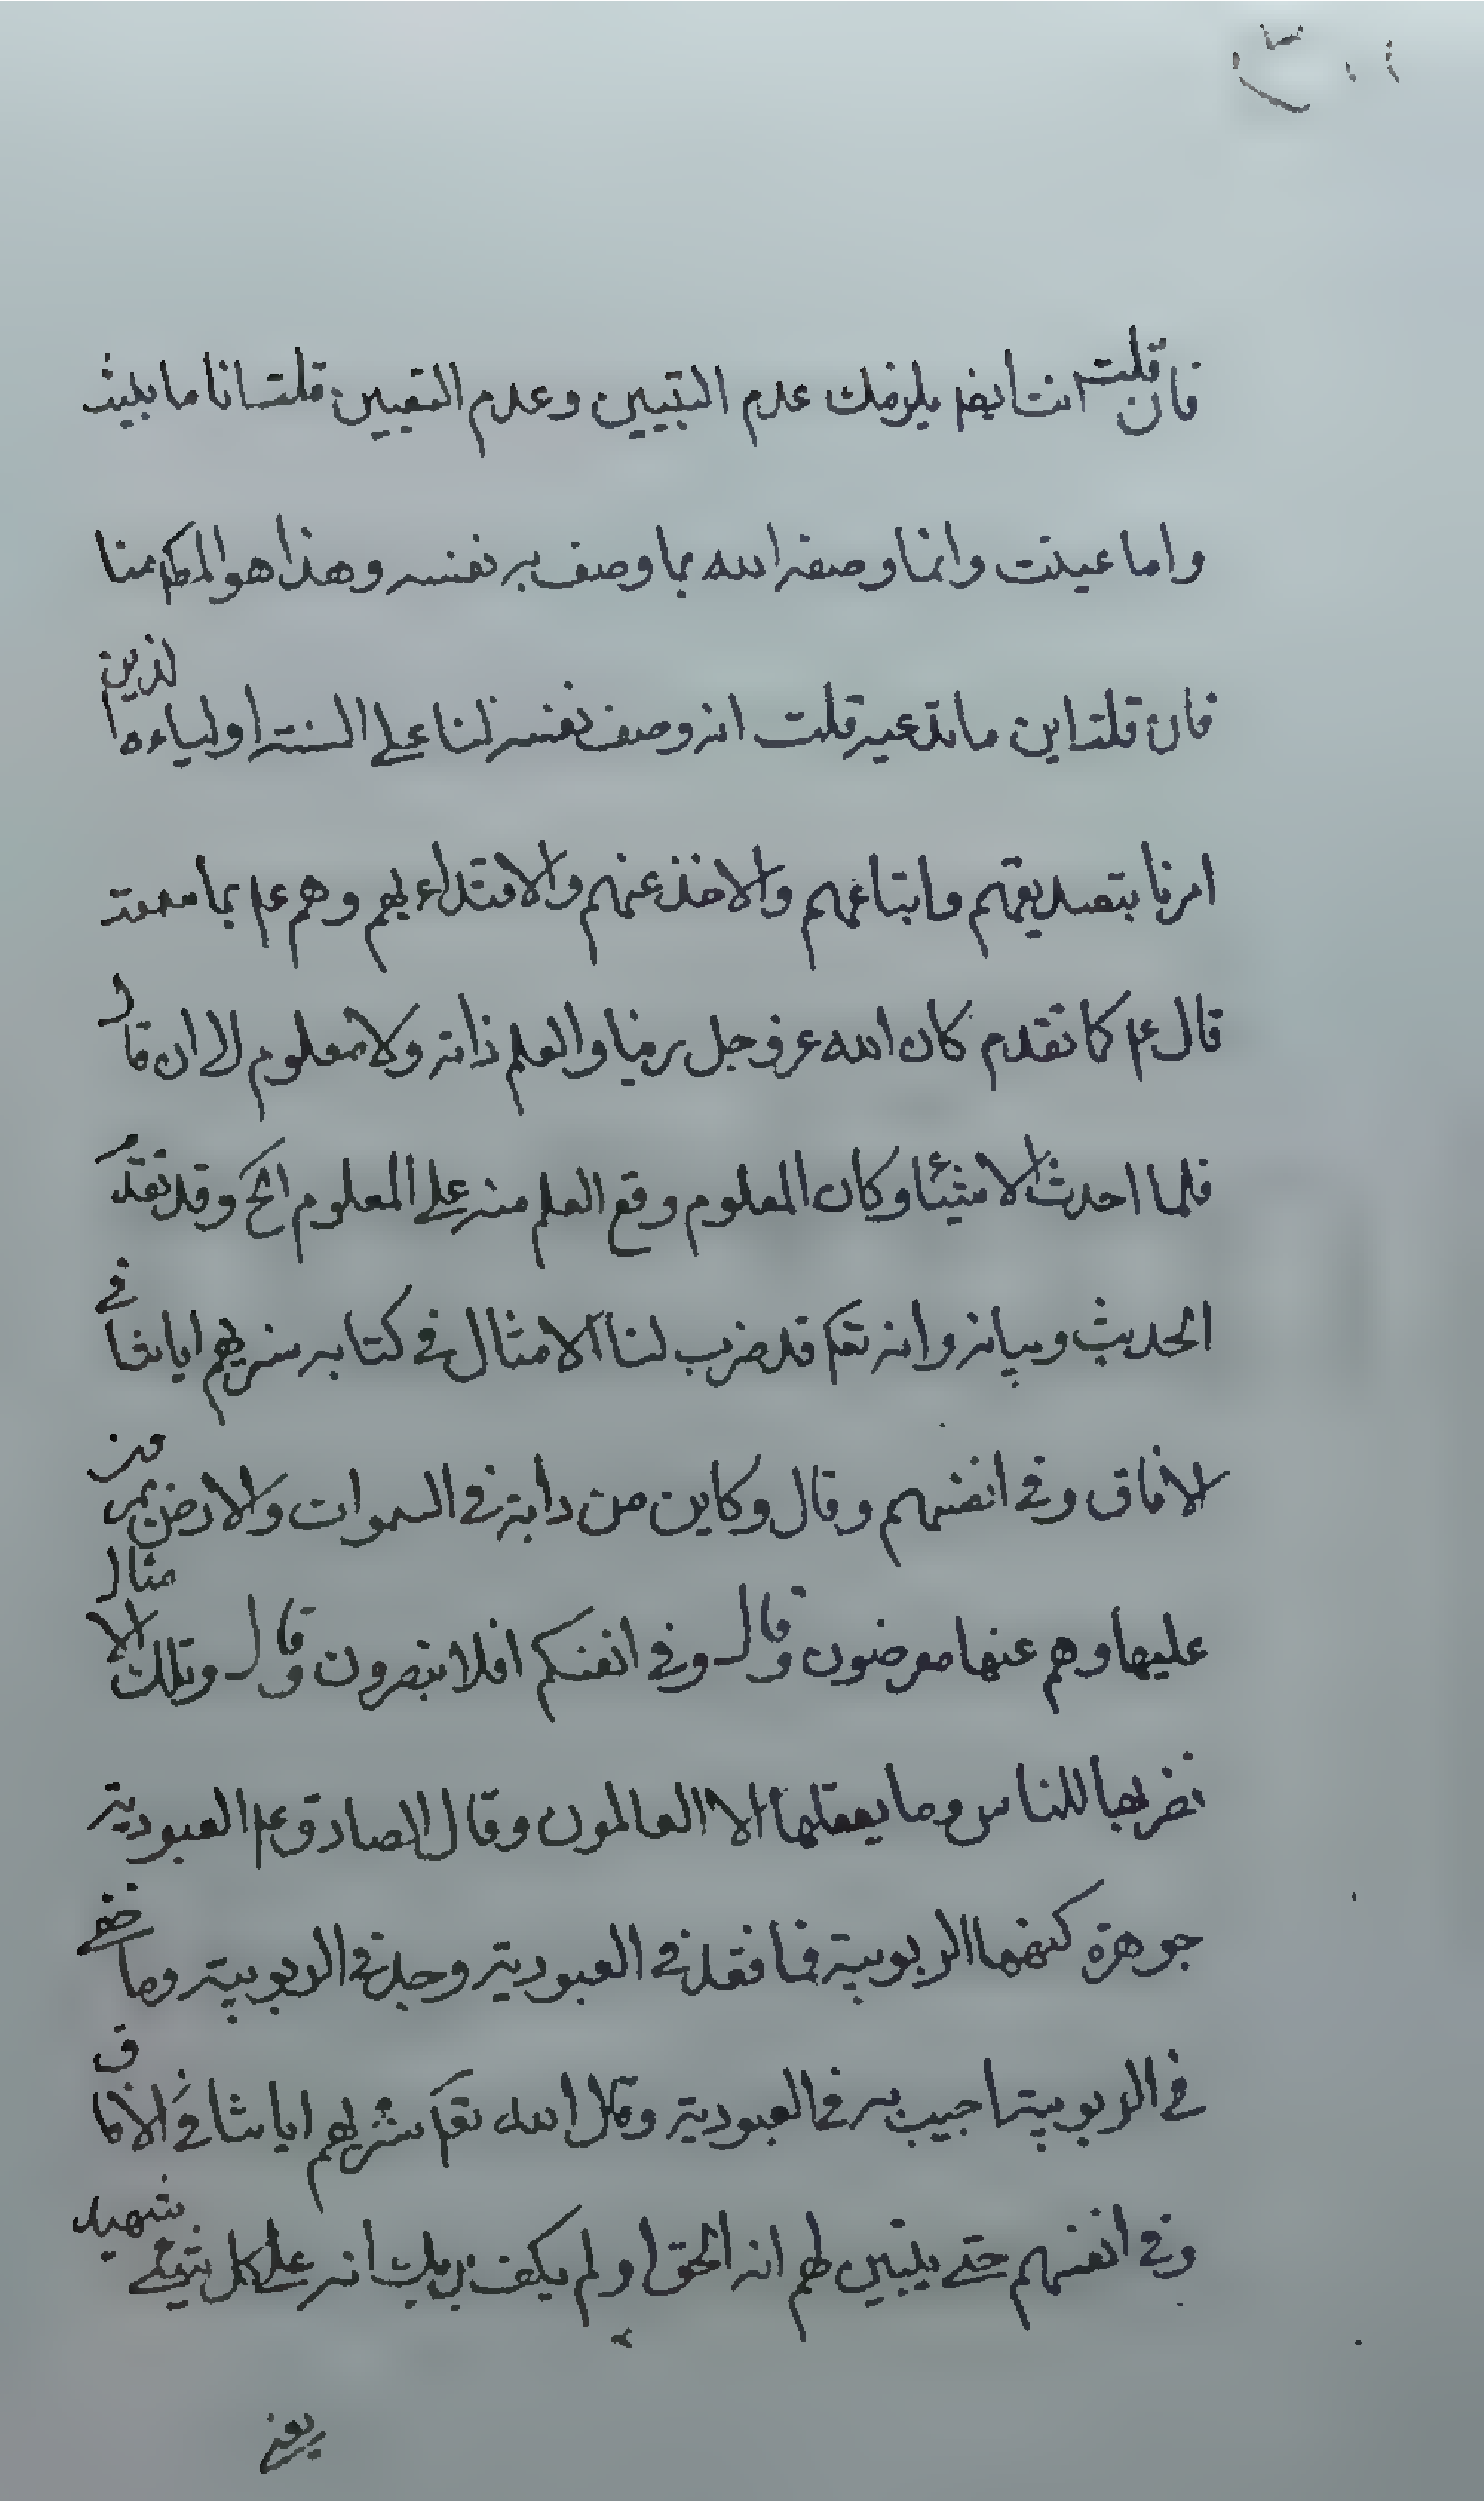 فان قلت انت ايضا يلزمك عدم التبيين وعدم التعيين قلت انا ما بينت
واما عينت وانما وصفه الله بما وصف به نفسه وهذا هو المط منا
فان قلت اين ما تدعيه قلت انه وصف نفسه لنا على السنة اولياءه الذين
امرنا بتصديقهم واتباعهم والاخذ عنهم والاقتداء بهم وهم ع بما سمعته
قال ع كا تقدم كان الله عز وجل ربنا والعلم ذاته ولا معلوم الا ان قال
فلما احدث الاشيئا وكان المعلوم وقع العلم منه على المعلوم الخ وقد تقدم
الحديث وبيانه وانه تعا قد ضرب لنا الامثال في كتابه سنريهم اياتنا في
الافاق وفي انفسهم وقال وكاين من داية في السموات والارض يمرون
عليها وهم عنها معرضون وقال وفي انفسكم افلا تبصرون وقال وتلك الامثال
نضربها للناس وما يعقلها الا العالمون وقال الصادق ع العبودية
جوهرة كنهها الربوبية فما فقد في العبودية وجد في الربوبية وما خفي
في الربوبية اصيب في العبودية وقال الله تعا سنريهم اياتنا في الافاق
وفي انفسهم حتى يتبين لهم انه الحق اولم يكف بربك انه على كل شيئ شهيد
يعني